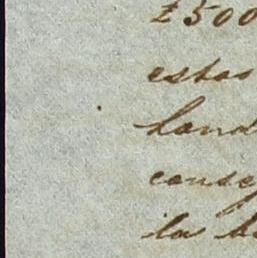 £500
estas
hand
conse
las